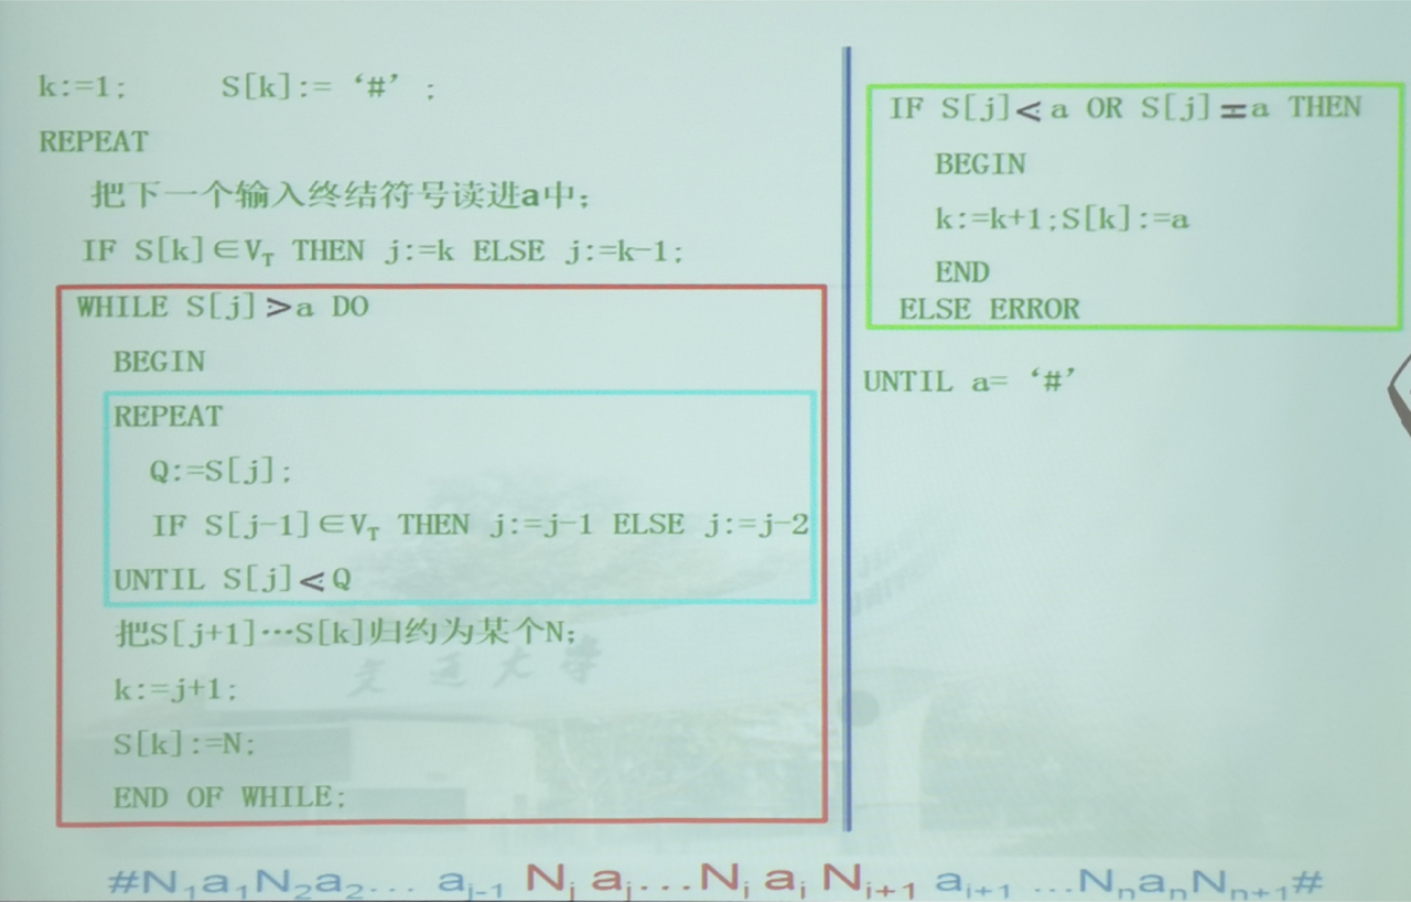 k:=1;  S[k]:= ‘#’ ;
REPEAT
把下一个输入终结符号读进a中;
IF S[k]∈V_T THEN j:=k ELSE j:=k-1;
WHILE S[j]⋗a DO
BEGIN
REPEAT
Q:=S[j];
IF S[j-1]∈V_T THEN j:=j-1 ELSE j:=j-2
UNTIL S[j]⋖Q
把S[j+1]…S[k]归约为某个N;
k:=j+1;
S[k]:=N;
END OF WHILE;
IF S[j]⋖a OR S[j]≖a THEN
BEGIN
k:=k+1;S[k]:=a
END
ELSE ERROR
UNTIL a= ‘#’
#N₁a₁N₂a₂... a_{j-1} N_j a_j...N_i a_i N_{i+1} a_{i+1} ...N_n a_n N_{n+1}#